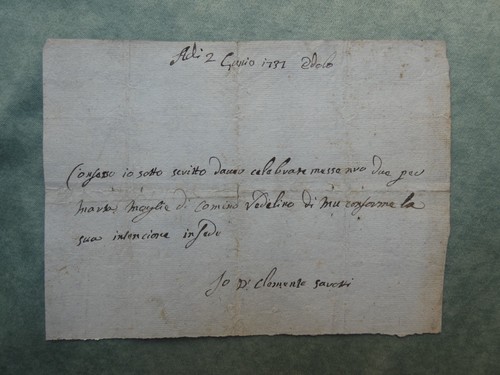 Adi 2 Genio 1737 Edolo
Confesso io sotto scritto d'aver celebrate messe nro due per
maria Moglie di Comino Vedelino di Mu conforme la
sua intencione in fede
Io D. Clemente Savori